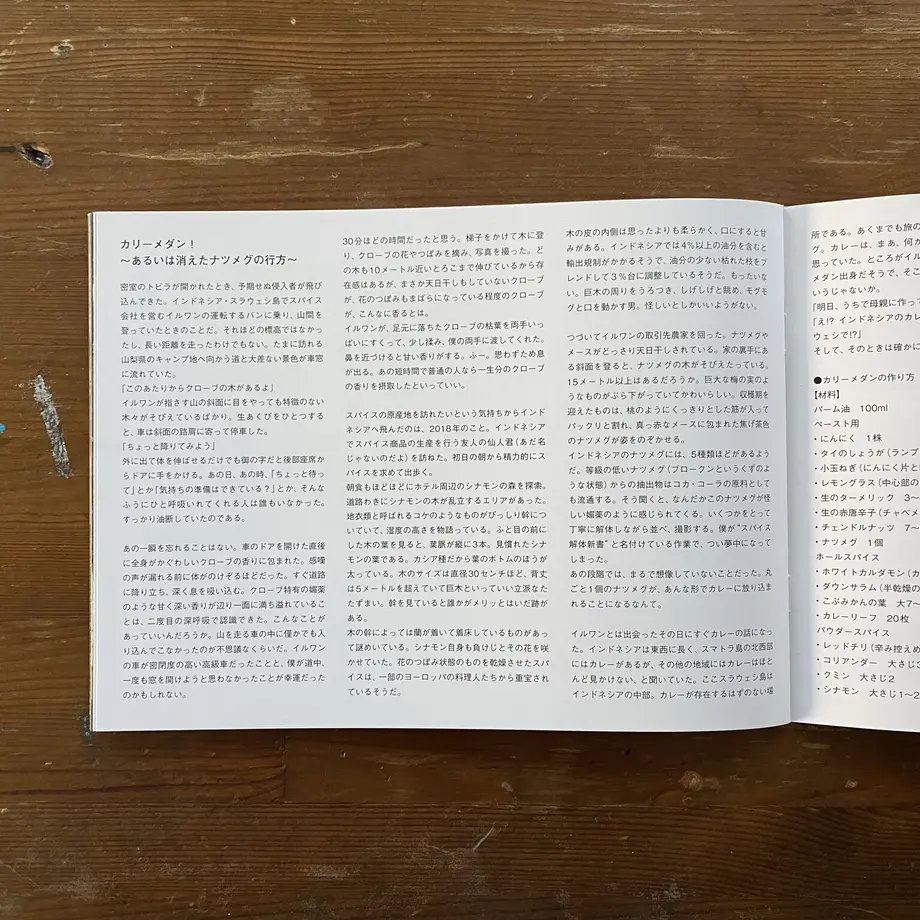 カリーメダン!
〜あるいは消えたナツメグの行方〜
密室のトビラが開かれたとき、予期せぬ侵入者が飛び
込んできた。インドネシア・スラウェシ島でスパイス
会社を営むイルワンの運転するバンに乗り、山間を
登っていたときのことだ。それほどの標高ではなかっ
たし、長い距離を走ったわけでもない。たまに訪れる
山梨県のキャンプ地へ向かう道と大差ない景色が車窓
に流れていた。
「このあたりからクローブの木があるよ」
イルワンが指さす山の斜面に目をやっても特徴のない
木々がそびえているばかり。生あくびをひとつする
と、車は斜面の路肩に寄って停車した。
「ちょっと降りてみよう」
外に出て体を伸ばせるだけでも御の字だと後部座席か
らドアに手をかける。あの日、あの時、「ちょっと待っ
て」とか「気持ちの準備はできている?」とか、そんな
ふうにひと呼吸いれてくれる人は誰もいなかった。
すっかり油断していたのである。
あの一瞬を忘れることはない。車のドアを開けた直後
に全身がかぐわしいクローブの香りに包まれた。感嘆
の声が漏れる前に体がのけぞるほどだった。すぐ道路
に降り立ち、深く息を吸い込む。クローブ特有の媚薬
のような甘く深い香りが辺り一面に満ち溢れているこ
とは、二度目の深呼吸で認識できた。こんなことが
あっていいんだろうか。山を走る車の中に僅かでも入
り込んでこなかったのが不思議なくらいだ。イルワン
の車が密閉度の高い高級車だったことと、僕が道中、
一度も窓を開けようと思わなかったことが幸運だった
のかもしれない。
30分ほどの時間だったと思う。梯子をかけて木に登
り、クローブの花やつぼみを摘み、写真を撮った。ど
の木も10メートル近いところまで伸びているから存
在感はあるが、まさか天日干しもしていないクローブ
が、花のつぼみもまばらになっている程度のクローブ
が、こんなに香るとは。
イルワンが、足元に落ちたクローブの枯葉を両手いっ
ぱいにすくって、少し揉み、僕の両手に渡してくれた。
鼻を近づけると甘い香りがする。ふー。思わずため息
が出る。あの短時間で普通の人なら一生分のクローブ
の香りを摂取したといっていい。
スパイスの原産地を訪れたいという気持ちからインド
ネシアへ飛んだのは、2018年のこと。インドネシア
でスパイス商品の生産を行う友人の仙人君(あだ名
じゃないのだよ)を訪ねた。初日の朝から精力的にス
パイスを求めて出歩く。
朝食もほどほどにホテル周辺のシナモンの森を探索。
道路わきにシナモンの木が乱立するエリアがあった。
地衣類と呼ばれるコケのようなものがびっしり幹につ
いていて、湿度の高さを物語っている。ふと目の前に
した木の葉を見ると、葉脈が縦に3本。見慣れたシナ
モンの葉である。カシア種だから葉のボトムのほうが
太っている。木のサイズは直径30センチほど、背丈
は5メートルを超えていて巨木といっていい立派なた
たずまい。幹を見ると誰かがメリッとはいだ跡が
ある。
木の幹によっては蘭が着いて着床しているものがあっ
て謎めいている。シナモン自身も負けじとその花を咲
かせていた。花のつぼみ状態のものを乾燥させたスパ
イスは、一部のヨーロッパの料理人たちから重宝され
ているそうだ。
木の皮の内側は思ったよりも柔らかく、口にすると甘
みがある。インドネシアでは4%以上の油分を含むと
輸出規制がかかるそうで、油分の少ない枯れた枝をブ
レンドして3%台に調整しているそうだ。もったいな
い。巨木の周りをうろつき、しげしげと眺め、モグモ
グと口を動かす男。怪しいとしかいいようがない。
つづいてイルワンの取引先農家を回った。ナツメグや
メースがどっさり天日干しされている。家の裏手にあ
る斜面を登ると、ナツメグの木がそびえたっている。
15メートル以上はあるだろうか。巨大な梅の実のよ
うなものがぶら下がっていてかわいらしい。収穫期を
迎えたものは、桃のようにくっきりとした筋が入って
パックリと割れ、真っ赤なメースに包まれた焦げ茶色
のナツメグが姿をのぞかせる。
インドネシアのナツメグには、5種類ほどがあるよう
だ。等級の低いナツメグ(ブロークンというくずのよ
うな状態)からの抽出物はコカ・コーラの原料として
も流通する。そう聞くと、なんだかこのナツメグが怪
しい媚薬のように感じられてくる。いくつかをとって
丁寧に解体しながら並べ、撮影する。僕が“スパイス
解体新書”と名付けている作業で、つい夢中になって
しまった。
あの段階では、まるで想像していないことだった。丸
ごと1個のナツメグが、あんな形でカレーに放り込ま
れることになるなんて。
イルワンとは出会ったその日にすぐカレーの話になっ
た。インドネシアは東西に長く、スマトラ島の北西部
にはカレーがあるが、その他の地域にはカレーはほと
んど見かけない、と聞いていた。ここスラウェシ島は
インドネシアの中部。カレーが存在するはずのない場
所である。あくまでも旅の
グ。カレーは、まあ、何カ
思っていた。ところがイル
メダン出身だそうで、そこ
いうじゃないか。
「明日、うちで母親に作って
「え!? インドネシアのカレ
ウェシで!?」
そして、そのときは確かに
●カリーメダンの作り方
【材料】
パーム油 100ml
ペースト用
・にんにく 1株
・タイのしょうが(ランプ
・小玉ねぎ(にんにく片と
・レモングラス(中心部の
・生のターメリック 3〜
・生の赤唐辛子(チャベメ
・チェンドルナッツ 7〜
・ナツメグ 1個
ホールスパイス
・ホワイトカルダモン(カ
・ダウンサラム(半乾燥の
・こぶみかんの葉 大7〜
・カレーリーフ 20枚
パウダースパイス
・レッドチリ(辛み控えめ
・コリアンダー 大さじ3
・クミン 大さじ2
・シナモン 大さじ1〜2